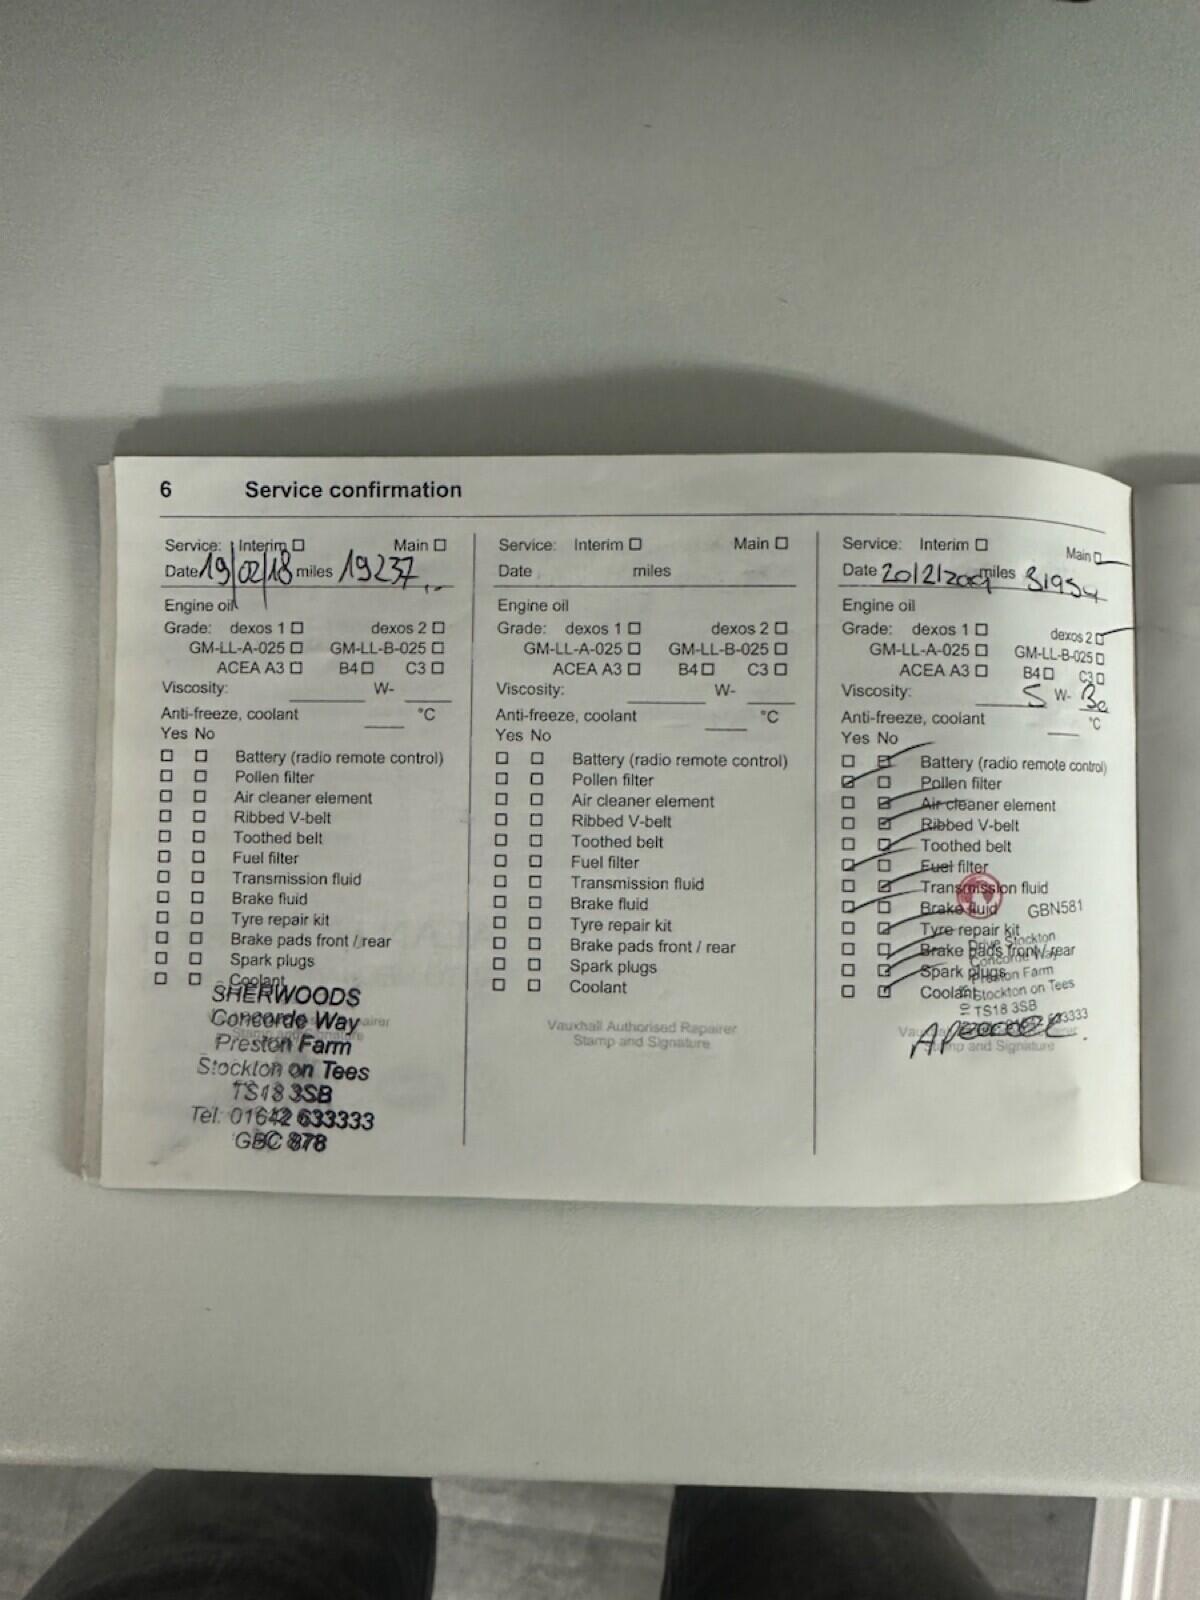 6 Service confirmation
Service: Interim Main
Date 19/02/18 miles 19237
Engine oil
Grade: dexos 1 dexos 2
GM-LL-A-025 GM-LL-B-025
ACEA A3 B4 C3
Viscosity: W-
Anti-freeze, coolant °C
Yes No
Battery (radio remote control)
Pollen filter
Air cleaner element
Ribbed V-belt
Toothed belt
Fuel filter
Transmission fluid
Brake fluid
Tyre repair kit
Brake pads front / rear
Spark plugs
Coolant
SHERWOODS
Concorde Way
Preston Farm
Stockton on Tees
TS18 3SB
Tel: 01642 633333
GBC 878
Service: Interim Main
Date miles
Engine oil
Grade: dexos 1 dexos 2
GM-LL-A-025 GM-LL-B-025
ACEA A3 B4 C3
Viscosity: W-
Anti-freeze, coolant °C
Yes No
Battery (radio remote control)
Pollen filter
Air cleaner element
Ribbed V-belt
Toothed belt
Fuel filter
Transmission fluid
Brake fluid
Tyre repair kit
Brake pads front / rear
Spark plugs
Coolant
Vauxhall Authorised Repairer
Stamp and Signature
Service: Interim Main
Date 20/2/20 miles 31954
Engine oil
Grade: dexos 1 dexos 2
GM-LL-A-025 GM-LL-B-025
ACEA A3 B4 C3
Viscosity: 5 W- 30
Anti-freeze, coolant °C
Yes No
Battery (radio remote control)
Pollen filter
Air cleaner element
Ribbed V-belt
Toothed belt
Fuel filter
Transmission fluid
Brake fluid GBN581
Tyre repair kit
Brake pads front / rear
Spark plugs
Coolant
Drive Stockton
Concorde Way
Preston Farm
Stockton on Tees
TS18 3SB
633333
Stamp and Signature